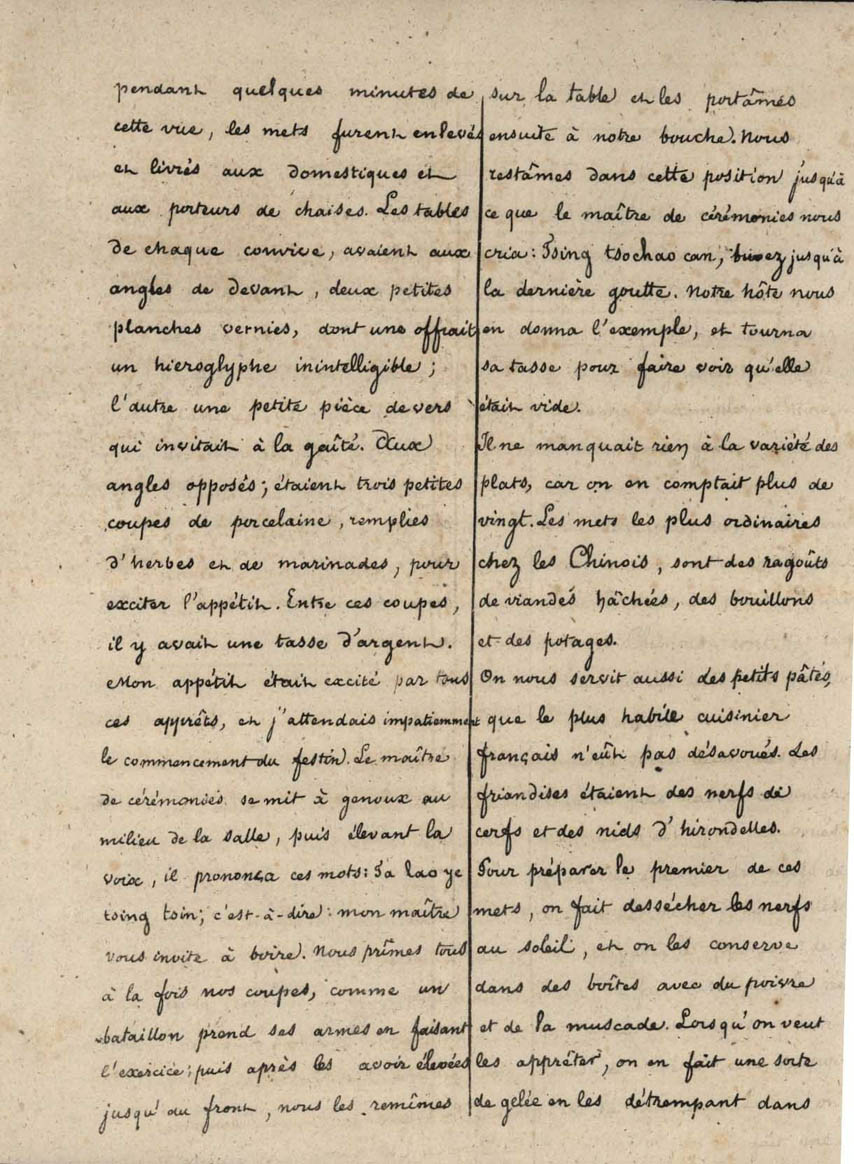 pendant quelques minutes de
cette vue, les mets furent enlevés
et livrés aux domestiques et
aux porteurs de chaises. Les tables
de chaque convive, avaient aux
angles de devant, deux petites
planches vernies, dont une offrait
un hieroglyphe inintelligible ;
l'autre une petite pièce de vers
qui invitait à la gaîté. Aux
angles opposés ; étaient trois petites
coupes de porcelaine, remplies
d'herbes et de marinades, pour
exciter l'appétit. Entre ces coupes,
il y avait une tasse d'argent.
Mon appétit était excité par tous
ces apprêts, et j'attendais impatiemment
le commencement du festin. Le maître
de cérémonies se mit à genoux au
milieu de la salle, puis élevant la
voix, il prononça ces mots : Ta lao ye
tsing tsin ; c'est-à-dire : mon maître
vous invite à boire. Nous prîmes tous
à la fois nos coupes, comme un
bataillon prend ses armes en faisant
l'exercice ; puis après les avoir élevées
jusqu'au front, nous les remîmes
sur la table et les portâmes
ensuite à notre bouche. Nous
restâmes dans cette position jusqu'à
ce que le maître de cérémonies nous
cria : Tsing tsochao can, buvez jusqu'à
la dernière goutte. Notre hôte nous
en donna l'exemple, et tourna
sa tasse pour faire voir qu'elle
était vide.
Il ne manquait rien à la variété des
plats, car on en comptait plus de
vingt. Les mets les plus ordinaires
chez les Chinois, sont des ragoûts
de viandes hâchées, des bouillons
et des potages.
On nous servit aussi des petits pâtés,
que le plus habile cuisinier
français n'eût pas désavoués. Les
friandises étaient des nerfs de
cerfs et des nids d'hirondelles.
Pour préparer le premier de ces
mets, on fait dessécher les nerfs
au soleil, et on les conserve
dans des boîtes avec du poivre
et de la muscade. Lorsqu'on veut
les apprêter, on en fait une sorte
de gelée en les détrempant dans